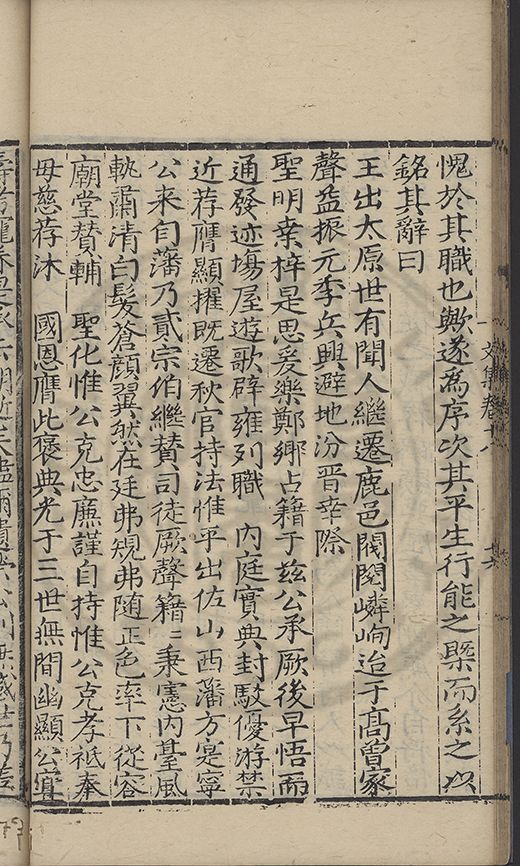 愧於其職也歟遂爲序次其平生行能之槩而系之以
銘其辭曰
王出太原世有聞人繼遷鹿邑閥閱嶙峋迨于髙曾家
聲益振元季兵興避地汾晋幸際
聖明桒梓是思爰樂鄭鄉占籍于兹公承厥後早悟而
通發迹塲屋遊歌辟雍列職　内庭實典封駁優游禁
近荐膺顯擢既遷秋官持法惟平出佐山西藩方寔寧
公来自藩乃貳宗伯繼賛司徒厥聲籍〻秉憲内䑓風
軌肅清白髮蒼顔翼然在廷弗䂓弗随正色率下從容
廟堂賛輔　聖化惟公克忠廉謹自持惟公克孝祇奉
毋慈荐沐　國恩膺此褒典光于三世無間幽顯公寔
文集卷十八